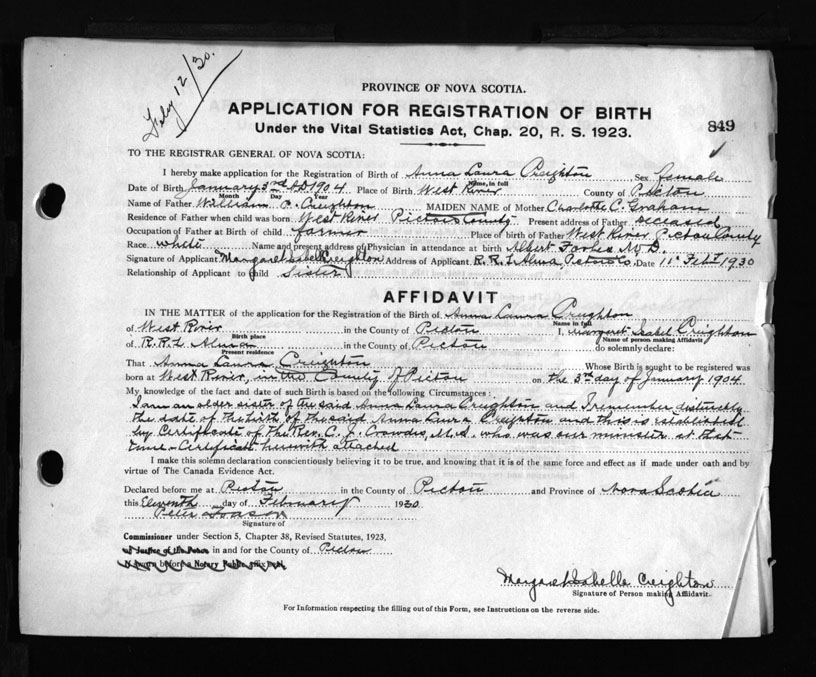 July 12/30.
PROVINCE OF NOVA SCOTIA.
APPLICATION FOR REGISTRATION OF BIRTH
Under the Vital Statistics Act, Chap. 20, R. S. 1923.
849
TO THE REGISTRAR GENERAL OF NOVA SCOTIA:
I hereby make application for the Registration of Birth of Anna Laura Creighton Sex female
Name, in full
Date of Birth January 3rd AD 1904 Place of Birth West River County of Pictou
Month Day Year
Name of Father William Creighton MAIDEN NAME of Mother Charlotte C. Graham
Residence of Father when child was born West River Pictou County Present address of Father deceased
Occupation of Father at Birth of child farmer Place of birth of Father West River, Pictou County
Race white Name and present address of Physician in attendance at birth Albert Forbes M.D.
Signature of Applicant Margaret Isabel Creighton Address of Applicant R.R.1 Alma, Pictou Co. Date 11th Feb 1930
Relationship of Applicant to Child Sister
AFFIDAVIT
IN THE MATTER of the application for the Registration of the Birth of Anna Laura Creighton
Name in full
of West River in the County of Pictou I, Margaret Isabel Creighton
Birth place Name of person making Affidavit
of R.R.1 Alma in the County of Pictou do solemnly declare:
Present residence
That Anna Laura Creighton Whose Birth is sought to be registered was
born at West River, in the County of Pictou on the 3rd day of January 1904
My knowledge of the fact and date of such Birth is based on the following Circumstances:
I am an older sister of the said Anna Laura Creighton and I remember distinctly
the date of the birth of the said Anna Laura Creighton and this is established
by Certificate of the Rev. C. J. M.A. who was our minister at that
time - Certificate herewith attached
I make this solemn declaration conscientiously believing it to be true, and knowing that it is of the same force and effect as if made under oath and by
virtue of The Canada Evidence Act.
Declared before me at Pictou in the County of Pictou and Province of Nova Scotia
this Eleventh day of February 1930
Peter
Signature of
Commissioner under Section 5, Chapter 38, Revised Statutes, 1923,
or Justice of the Peace in and for the County of Pictou
Notary Public
Margaret Isabella Creighton
Signature of Person making Affidavit.
For Information respecting the filling out of this Form, see Instructions on the reverse side.